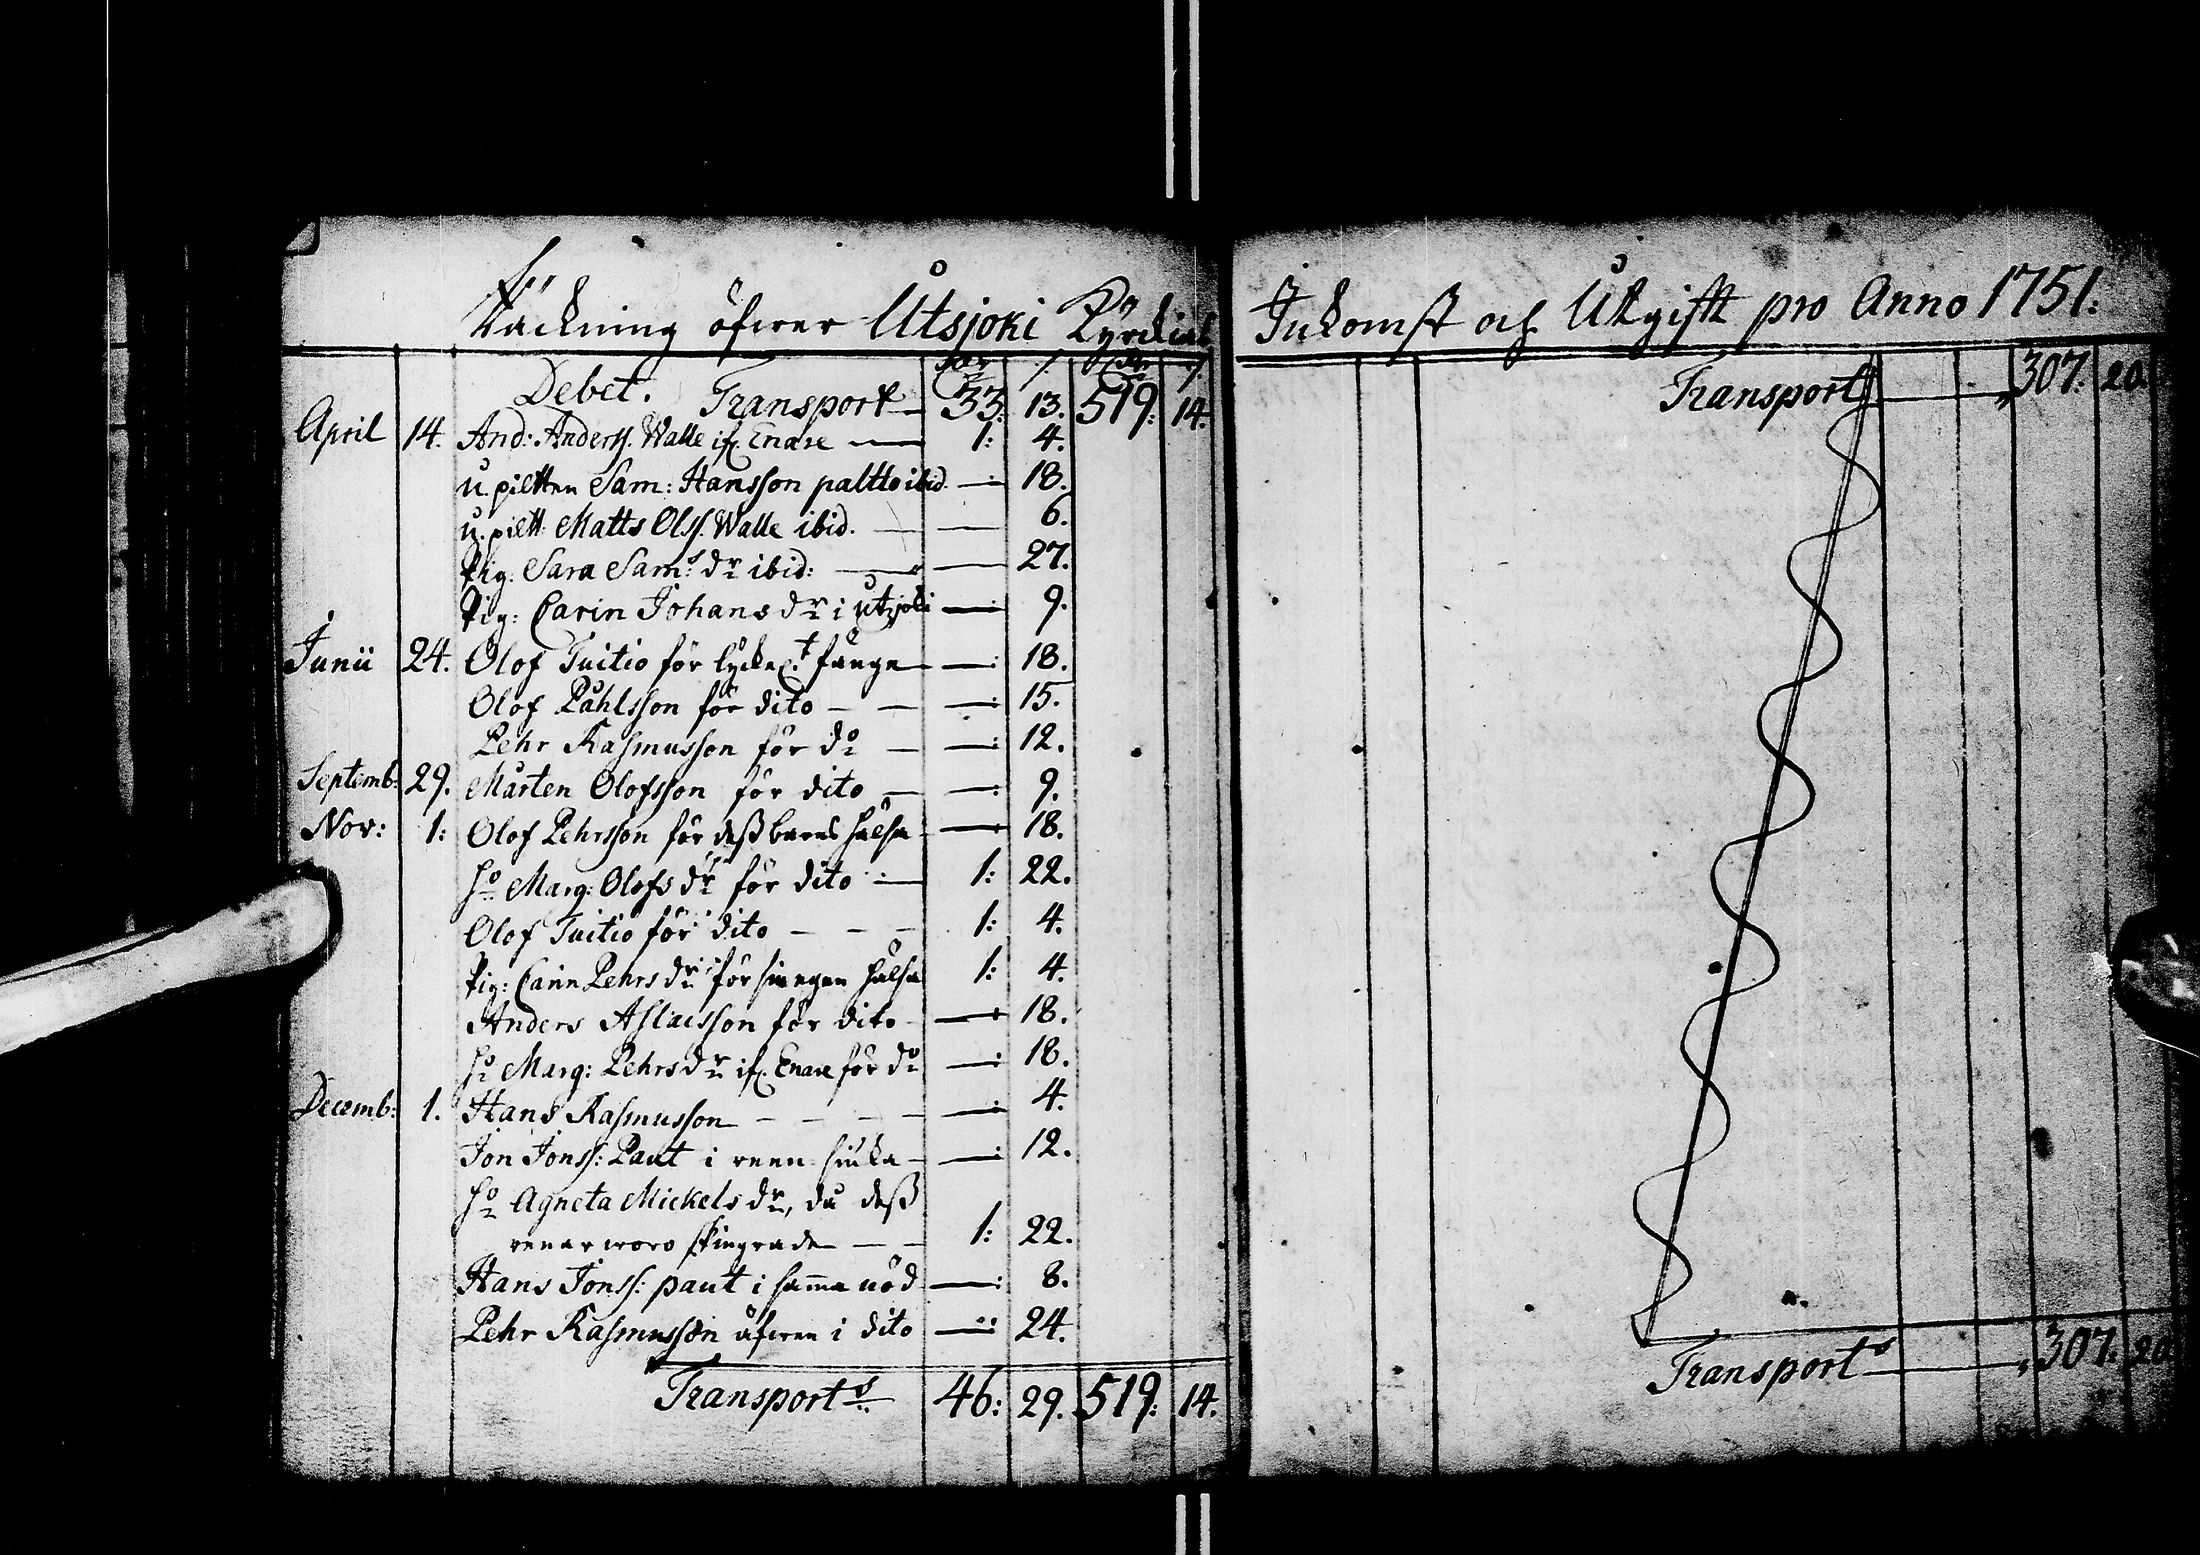 Räckning öfwer Utsjoki Kyrckias
Debet. Transport 33: 13. 519: 14.
April 14. And: Anderss. Walle if. Enare — 1: 4.
u. piltten Sam: Hansson paltto ibid. —: 18.
u. piltt. Matts Olss. Walle ibid. — 6.
Pig: Sara Sam:s dr ibid: — 27.
Pig: Carin Johans dr i utzjoki —: 9.
Junii 24. Olof Tuitio för lyckel.t fänge —: 18.
Olof Påhlsson för dito — —: 15.
Pehr Rasmusson för do — —: 12.
Septemb: 29. Mårten Olofsson för dito — —: 9.
Nov: 1: Olof Pehrsson för dess barns hälsa —: 18.
ho Marg: Olofs dr för dito — 1: 22.
Olof Tuitio för dito — — — 1: 4.
Pig: Carin Pehrs dr för sin egen hälsa 1: 4.
Anders Aslacsson för dito —: 18.
ho Marg: Pehrs dr if. Enare för do —: 18.
Decemb: 1. Hans Rasmusson — — — —: 4.
Jon Jonss: Paut i reen siuka —: 12.
ho Agneta Mickels dr, då dess
renar woro skingrade — — 1: 22.
Hans Jonss: paut i samma nöd —: 8.
Pehr Rasmusson äfwen i dito —: 24.
Transport:s 46: 29. 519: 14.
Inkomst och Utgifft pro Anno 1751:
Transport — 307: 20
Transport:s — 307: 20